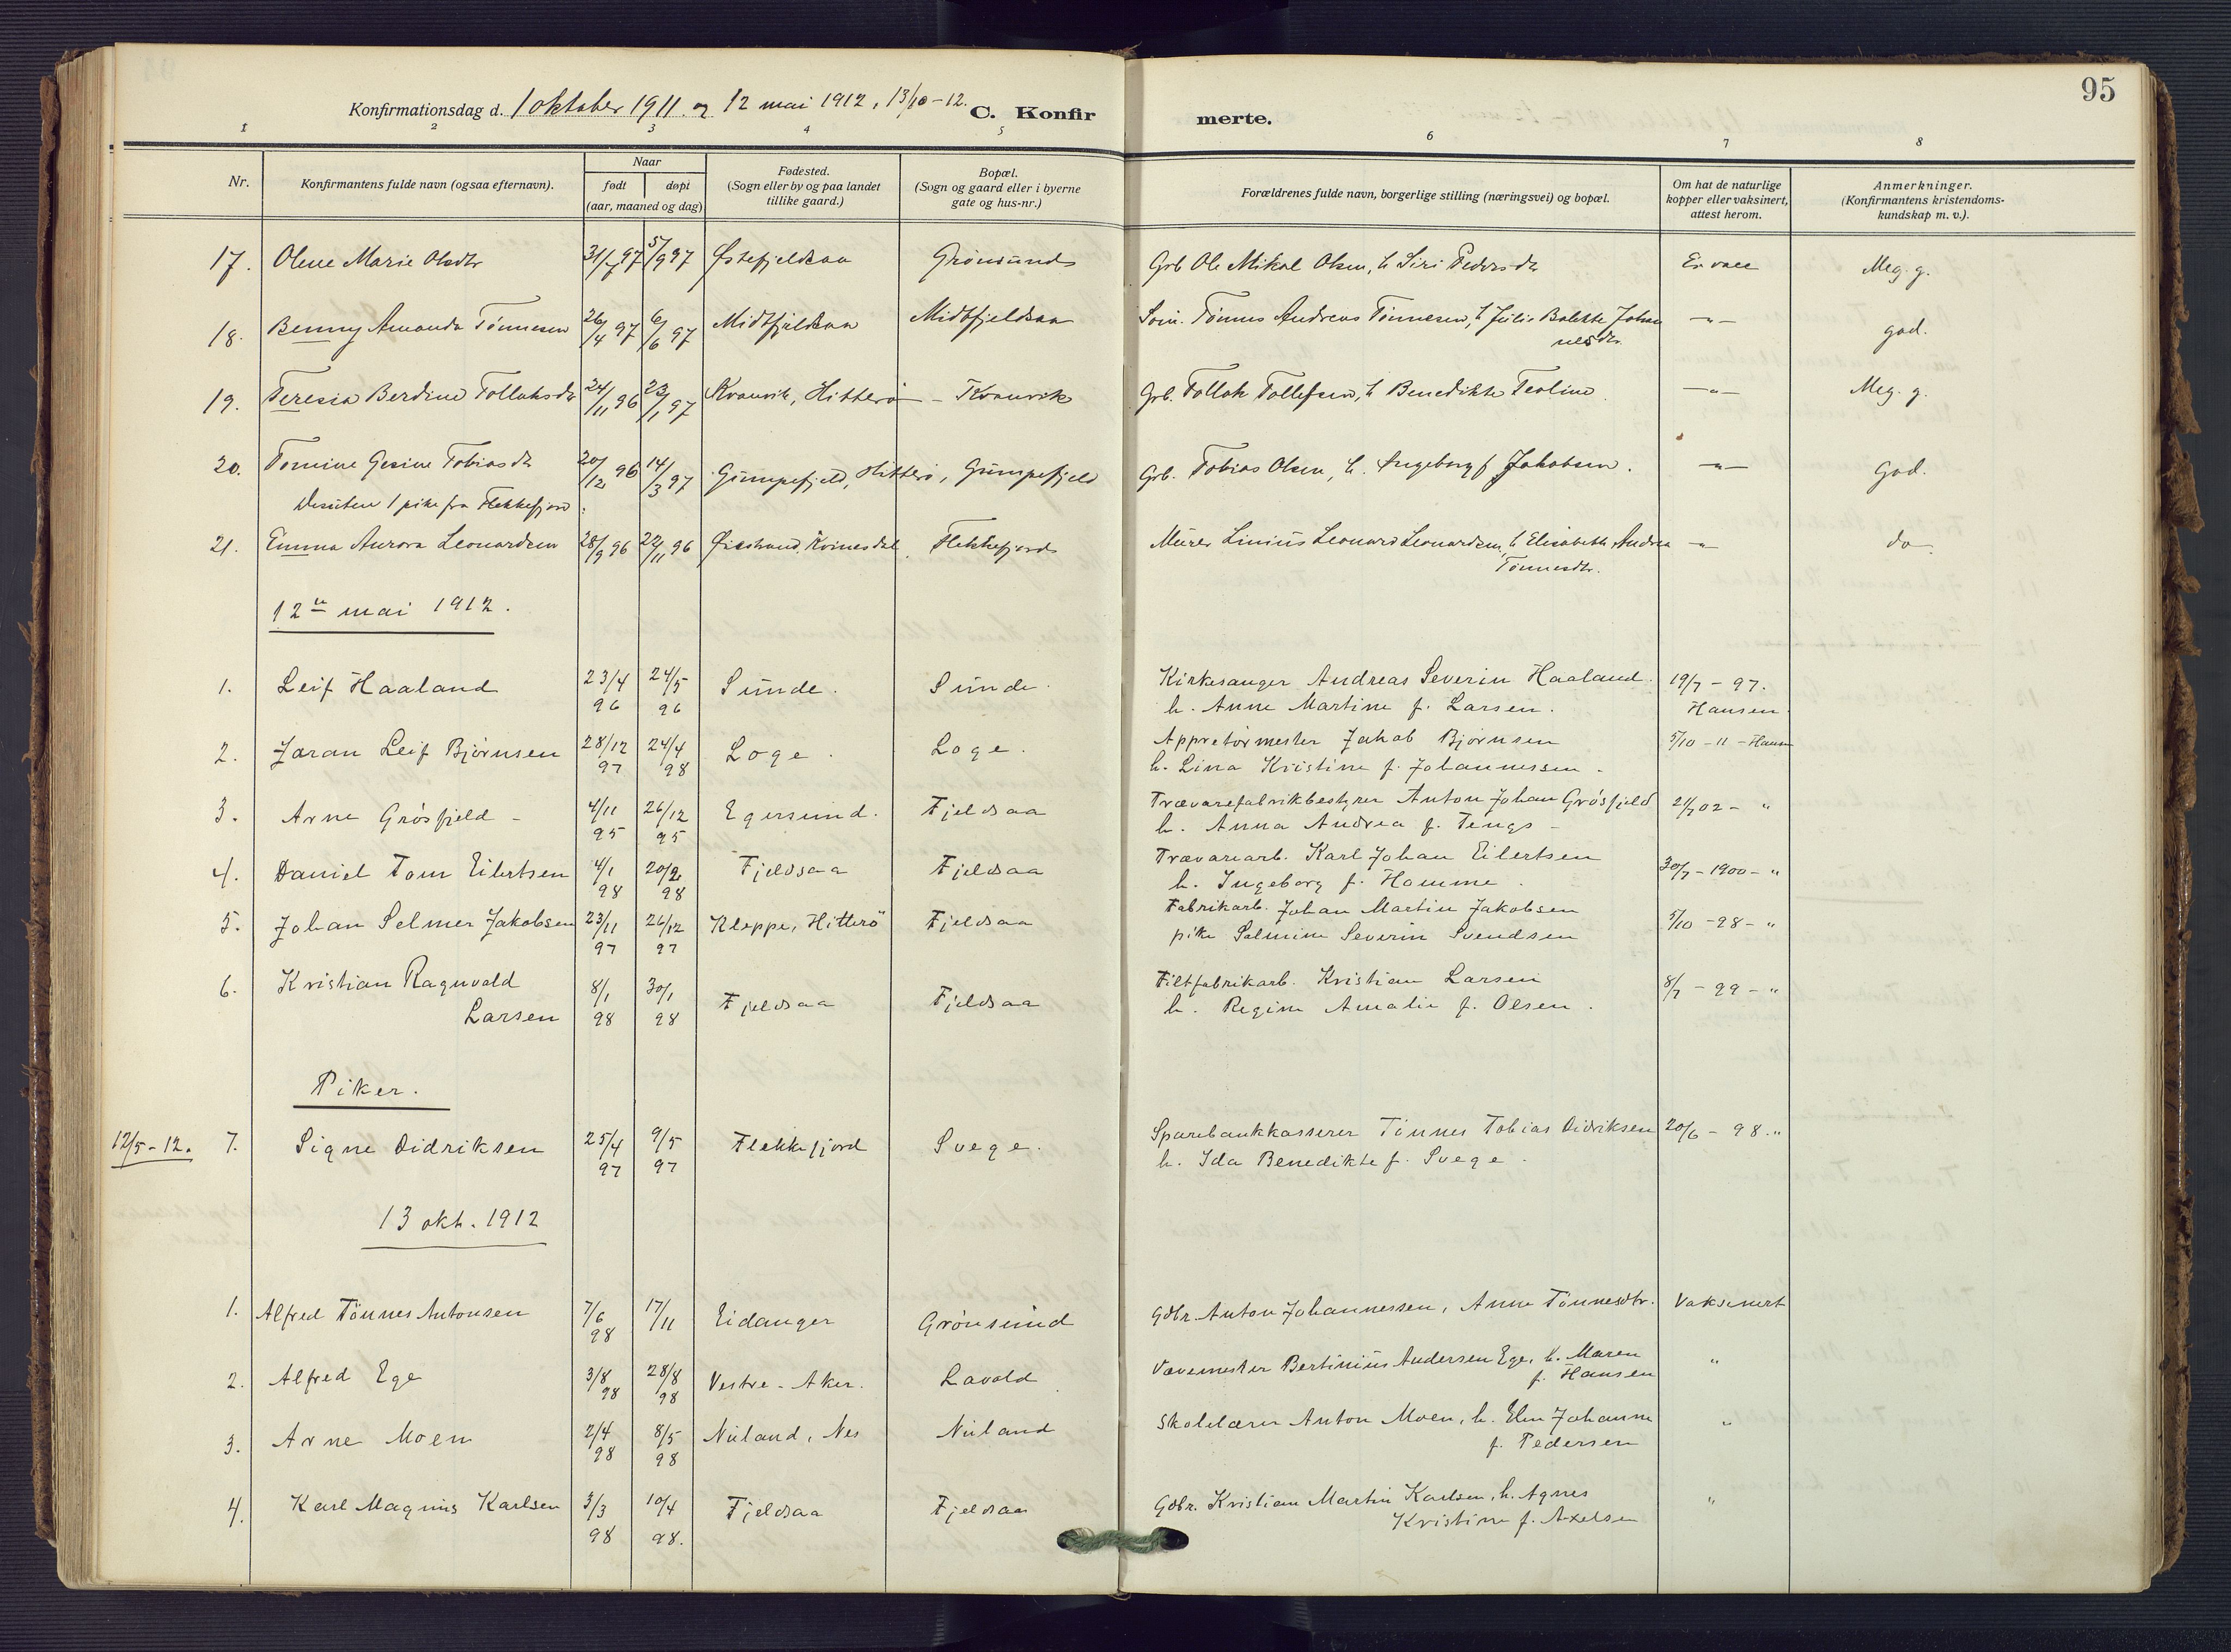 95
Konfirmationsdag d. 1 oktober 1911. og 12 mai 1912, 13/10-12.
C. Konfirmerte.
1 2 3 4 5 6 7 8
Nr.
Konfirmantens fulde navn (ogsaa efternavn).
Naar
født døpt
(aar, maaned og dag)
Fødested.
(Sogn eller by og paa landet
tillike gaard.)
Bopæl.
(Sogn og gaard eller i byerne
gate og hus-nr.)
Forældrenes fulde navn, borgerlige stilling (næringsvei) og bopæl.
Om hat de naturlige
kopper eller vaksinert,
attest herom.
Anmerkninger.
(Konfirmantens kristendoms-
kundskap m. v.).
17. Olene Marie Olsdtr 31/7 97 5/9 97 Østefjeldsaa Grønsund Grb Ole Mikal Olsen, h Siri Pedersdtr Er vacc Meg. g.
18. Benny Amanda Tönnesen 26/4 97 6/6 97 Midtfjeldsaa Midtfjeldsaa Tönnes Andreas Tönnesen, h Julie Bolette Johan
nesdtr. -"- god.
19. Teresia Berdine Tollaksdtr 24/11 96 23/1 97 Kvanvik, Hitterö - Kvanvik Grb. Tollak Tollefsen, h Benedikte Teoline -"- Meg. g.
20. Tomine Gesine Tobiasdtr 20/12 96 14/3 97 Gumpefjeld, Hitterö, Gumpefjeld Grb. Tobias Olsen, h. Ingeborg f Jakobsen. -"- God.
Desuten 1 pike fra Flekkefjord:
21. Emma Aurora Leonardsen 28/9 96 22/11 96 Øiestrand, Kvinesdal, Flekkefjord Murer Linius Leonard Leonardsen, h Elisabeth Andrea
Tönnesdtr. -"- do.
12te mai 1912.
1. Leif Haaland 23/4 96 24/5 96 Sunde. Sunde. Kirkesanger Andreas Severin Haaland. 19/7 - 97.
h. Anne Martine f. Larsen. Hansen.
2. Jaran Leif Bjørnsen 28/12 97 24/4 98 Loge. Loge. Appretørmester Jakob Bjørnsen 5/10 - 11 - Hansen
h. Lina Kristine f. Johannessen.
3. Arne Grøsfjeld - 4/11 95 26/12 95 Egersund. Fjeldsaa Trævarefabrikbestyrer Anton Johan Grøsfjeld 21/7 02 - "
h. Anna Andrea f. Tengs -
4. Daniel Tom Eilertsen 4/1 98 20/2 98 Fjeldsaa Fjeldsaa Trævarearb. Karl Johan Eilertsen 30/7 - 1900 - "
h. Ingeborg f. Homme.
5. Johan Selmer Jakobsen 23/11 97 26/12 97 Kleppe, Hitterö Fjeldsaa Fabrikarb. Johan Martin Jakobsen 5/10 - 98 - "
pike Salmine Severin Svendsen
6. Kristian Ragnvald
Larsen 8/1 98 30/1 98 Fjeldsaa Fjeldsaa Filtfabrikarb. Kristian Larsen 8/7 - 99 - "
h. Regine Amalie f. Olsen.
Piker.
12/5-12. 7. Signe Didriksen 25/4 97 9/5 97 Flekkefjord Svege. Sparebankkasserer Tönnes Tobias Didriksen 20/6 - 98. "
h. Ida Benedikte f. Svege.
13 okt. 1912
1. Alfred Tönnes Antonsen 7/6 98 17/11 Eidanger Grönsund Gdbr. Anton Johannessen, Anne Tönnesdtr. Vaksinert
2. Alfred Ege 3/8 98 28/8 98 Vestre-Aker. Lavold Vævemester Bertinius Andersen Ege, h. Maren
f. Hansen "
3. Arne Moen 2/4 98 8/5 98 Nuland, Nes Nuland Skolelærer Anton Moen, h. Elen Johanne
f. Pedersen "
4. Karl Magnus Karlsen 3/3 98 10/4 98. Fjeldsaa Fjeldsaa Gdbr. Kristian Martin Karlsen, h. Agnes
Kristine f. Axelsen "